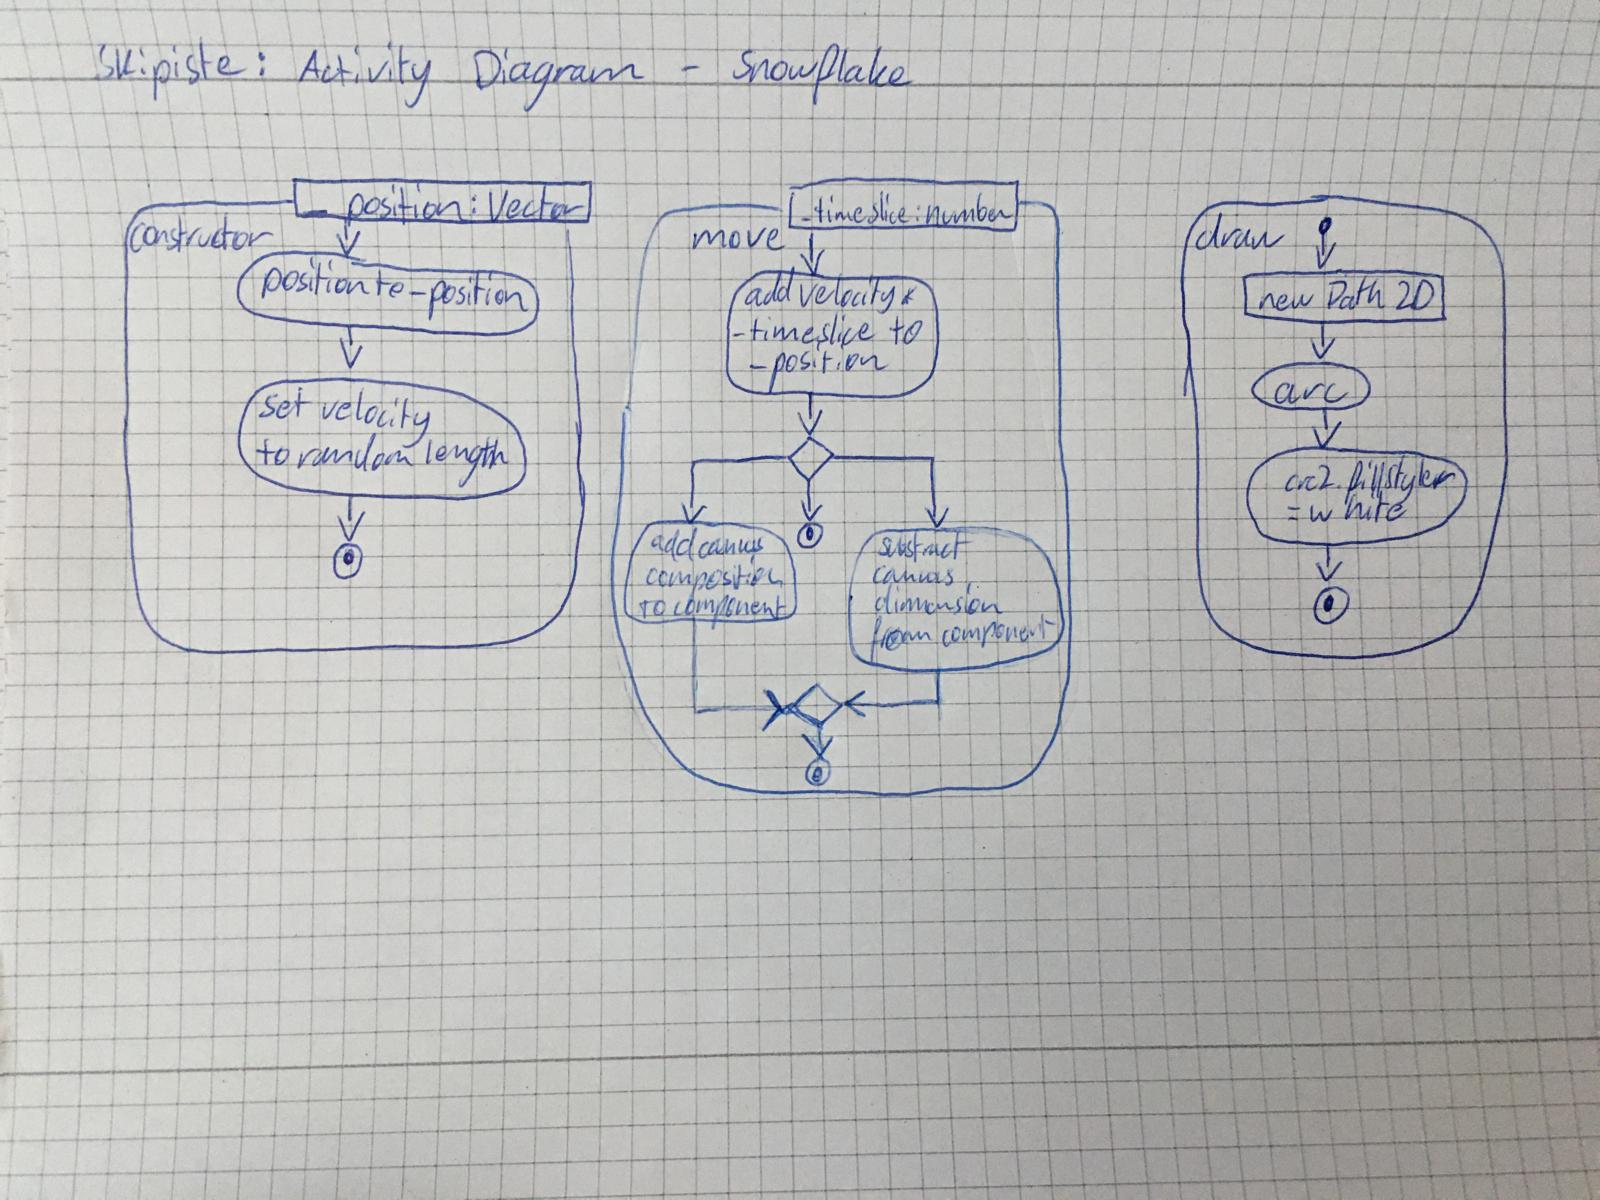 Skipiste: Activity Diagram - Snowflake
_position: Vector
constructor
position to _position
set velocity
to random length
_timeslice: number
move
add velocity *
_timeslice to
_position
add canvas
composition
to component
substract
canvas
dimmension
from component
draw
new Path 2D
arc
crc2.fillstyle
= white